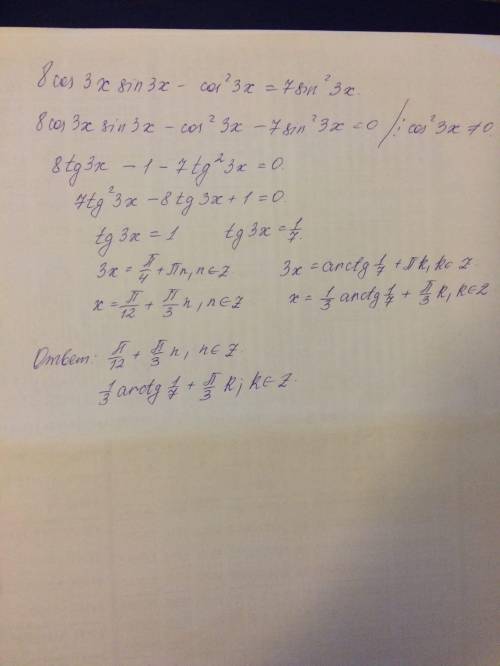 8cos 3x sin3x - cos²3x = 7sin²3x.
8cos3x sin3x - cos²3x - 7sin²3x = 0 /: cos²3x ≠ 0
8tg3x - 1 - 7tg²3x = 0.
7tg²3x - 8tg3x + 1 = 0.
tg3x = 1 tg3x = 1/7.
3x = π/4 + πn, n∈Z. 3x = arctg 1/7 + πk, k∈Z.
x = π/12 + π/3 n, n∈Z x = 1/3 arctg 1/7 + π/3 k, k∈Z
Ответ: π/12 + π/3 n, n∈Z.
1/3 arctg 1/7 + π/3 k; k∈Z.